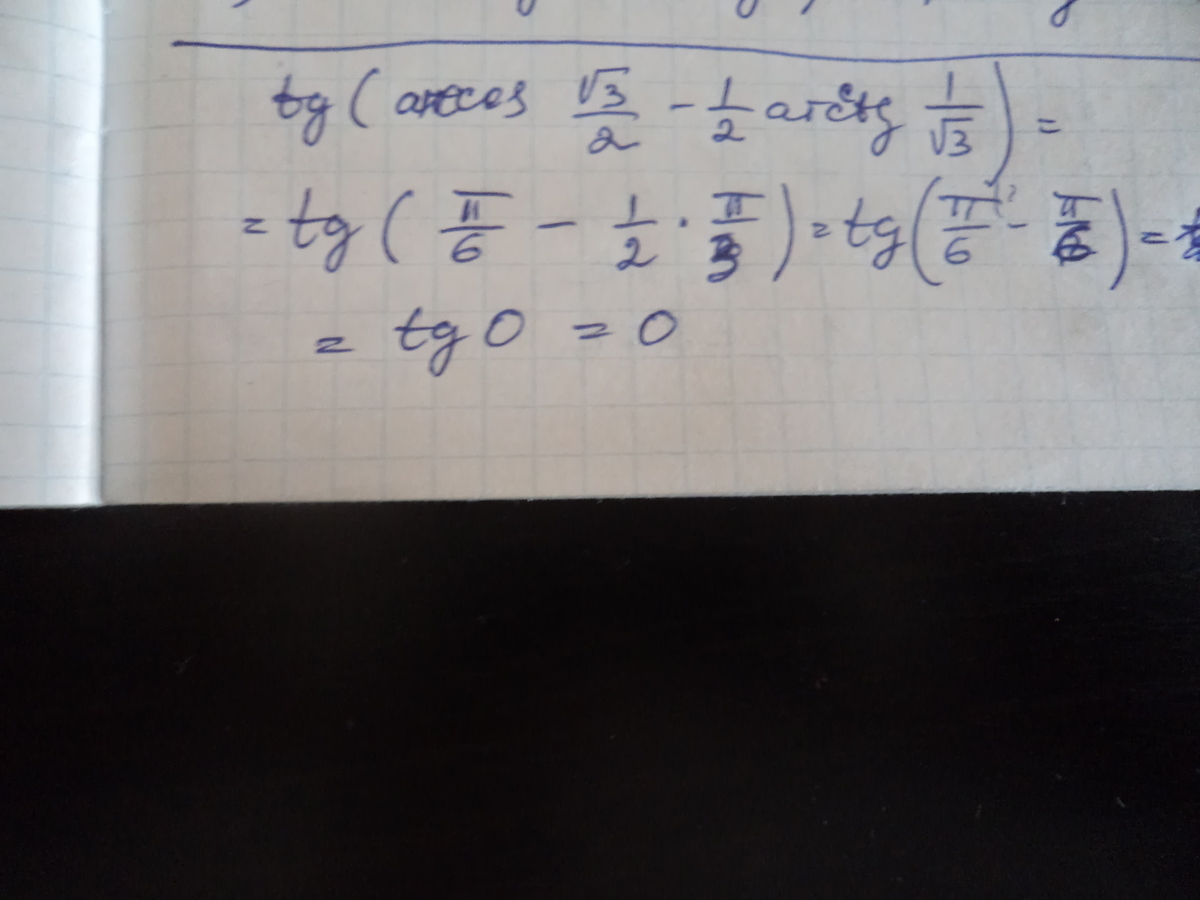 tg ( arccos √3/2 - 1/2 arcctg 1/√3 ) =
= tg ( π/6 - 1/2 · π/3 ) = tg ( π/6 - π/6 ) =
= tg 0 = 0